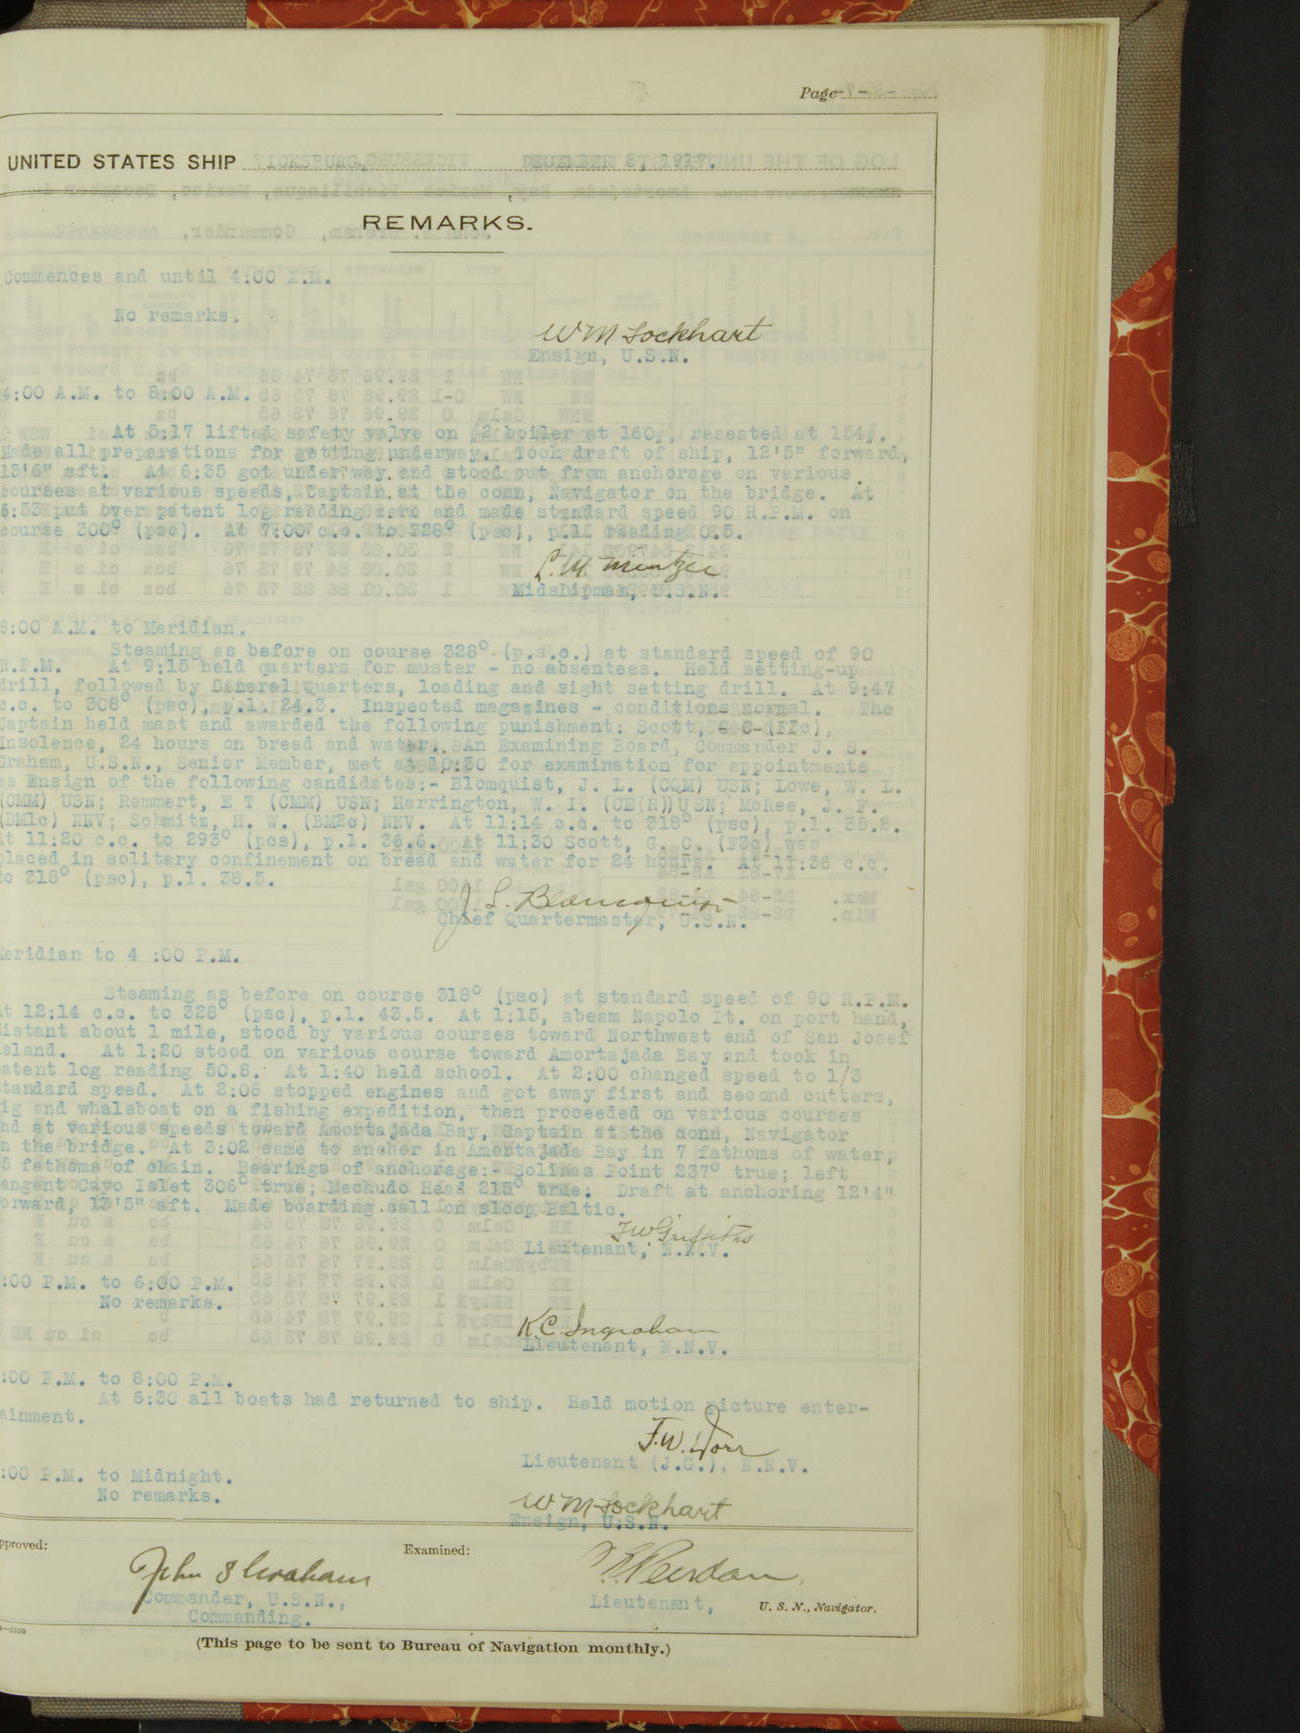 Page -7-
UNITED STATES SHIP VICKSBURG, DECEMBER 3, 1917.
REMARKS.
Commences and until 4:00 A.M.
No remarks.
W M Lockhart
Ensign, U.S.N.
4:00 A.M. to 8:00 A.M.
At 5:17 lifted safety valve on #2 boiler at 160#, reseated at 154#.
Made all preparations for getting underway. Took draft of ship, 12'5" forward,
13'6" aft. At 6:35 got under way and stood out from anchorage on various
courses at various speeds, Captain at the conn, Navigator on the bridge. At
6:53 put over patent log reading zero and made standard speed 90 R.P.M. on
course 300° (psc). At 7:00 c.c. to 328° (psc), p.l. reading 0.5.
Midshipman, U.S.N.
8:00 A.M. to Meridian.
Steaming as before on course 328° (p.s.c.) at standard speed of 90
R.P.M. At 9:15 held quarters for muster - no absentees. Held setting-up
drill, followed by General Quarters, loading and sight setting drill. At 9:47
c.c. to 308° (psc), p.l. 24.3. Inspected magazines - conditions normal. The
Captain held mast and awarded the following punishment: Scott, G C (F3c),
Insolence, 24 hours on bread and water. An Examining Board, Commander J. S.
Graham, U.S.N., Senior Member, met at 10:30 for examination for appointments
as Ensign of the following candidates:- Blomquist, J. L. (CQM) USN; Lowe, W. L.
(CMM) USN; Remmert, E T (CMM) USN; Harrington, W. I. (CE(R)) USN; McRee, J. F.
(BM1c) NNV; Schmitz, H. W. (BM2c) NNV. At 11:14 c.c. to 318° (psc), p.l. 35.2.
At 11:20 c.c. to 293° (pcs), p.l. 36.6. At 11:30 Scott, G. C. (F3c) was
placed in solitary confinement on bread and water for 24 hours. At 11:36 c.c.
to 318° (psc), p.l. 38.5.
J. L. Blomquist
Chief Quartermaster, U.S.N.
Meridian to 4 :00 P.M.
Steaming as before on course 318° (psc) at standard speed of 90 R.P.M.
At 12:14 c.c. to 328° (psc), p.l. 43.5. At 1:15, abeam Napolo Pt. on port hand,
distant about 1 mile, stood by various courses toward Northwest end of San Josef
Island. At 1:20 stood on various course toward Amortajada Bay and took in
patent log reading 50.6. At 1:40 held school. At 2:00 changed speed to 1/3
standard speed. At 2:08 stopped engines and got away first and second cutters,
gig and whaleboat on a fishing expedition, then proceeded on various courses
and at various speeds toward Amortajada Bay, Captain at the conn, Navigator
on the bridge. At 3:02 came to anchor in Amortajada Bay in 7 fathoms of water,
5 fathoms of chain. Bearings of anchorage:- Solinas Point 237° true; left
tangent Cayo Islet 306° true; Mechudo Head 215° true. Draft at anchoring 12'4"
forward, 13'5" aft. Made boarding call on sloop Baltic.
F W Griffiths
Lieutenant, N.N.V.
:00 P.M. to 6:00 P.M.
No remarks.
K. C. Ingraham
Lieutenant, N.N.V.
:00 P.M. to 8:00 P.M.
At 6:30 all boats had returned to ship. Held motion picture enter-
tainment.
F. W. Dorr
Lieutenant (J.G.), N.N.V.
:00 P.M. to Midnight.
No remarks.
W M Lockhart
Ensign, U.S.N.
pproved:
Examined:
John S Graham
Commander, U.S.N.,
Commanding.
Lieutenant, U. S. N., Navigator.
(This page to be sent to Bureau of Navigation monthly.)